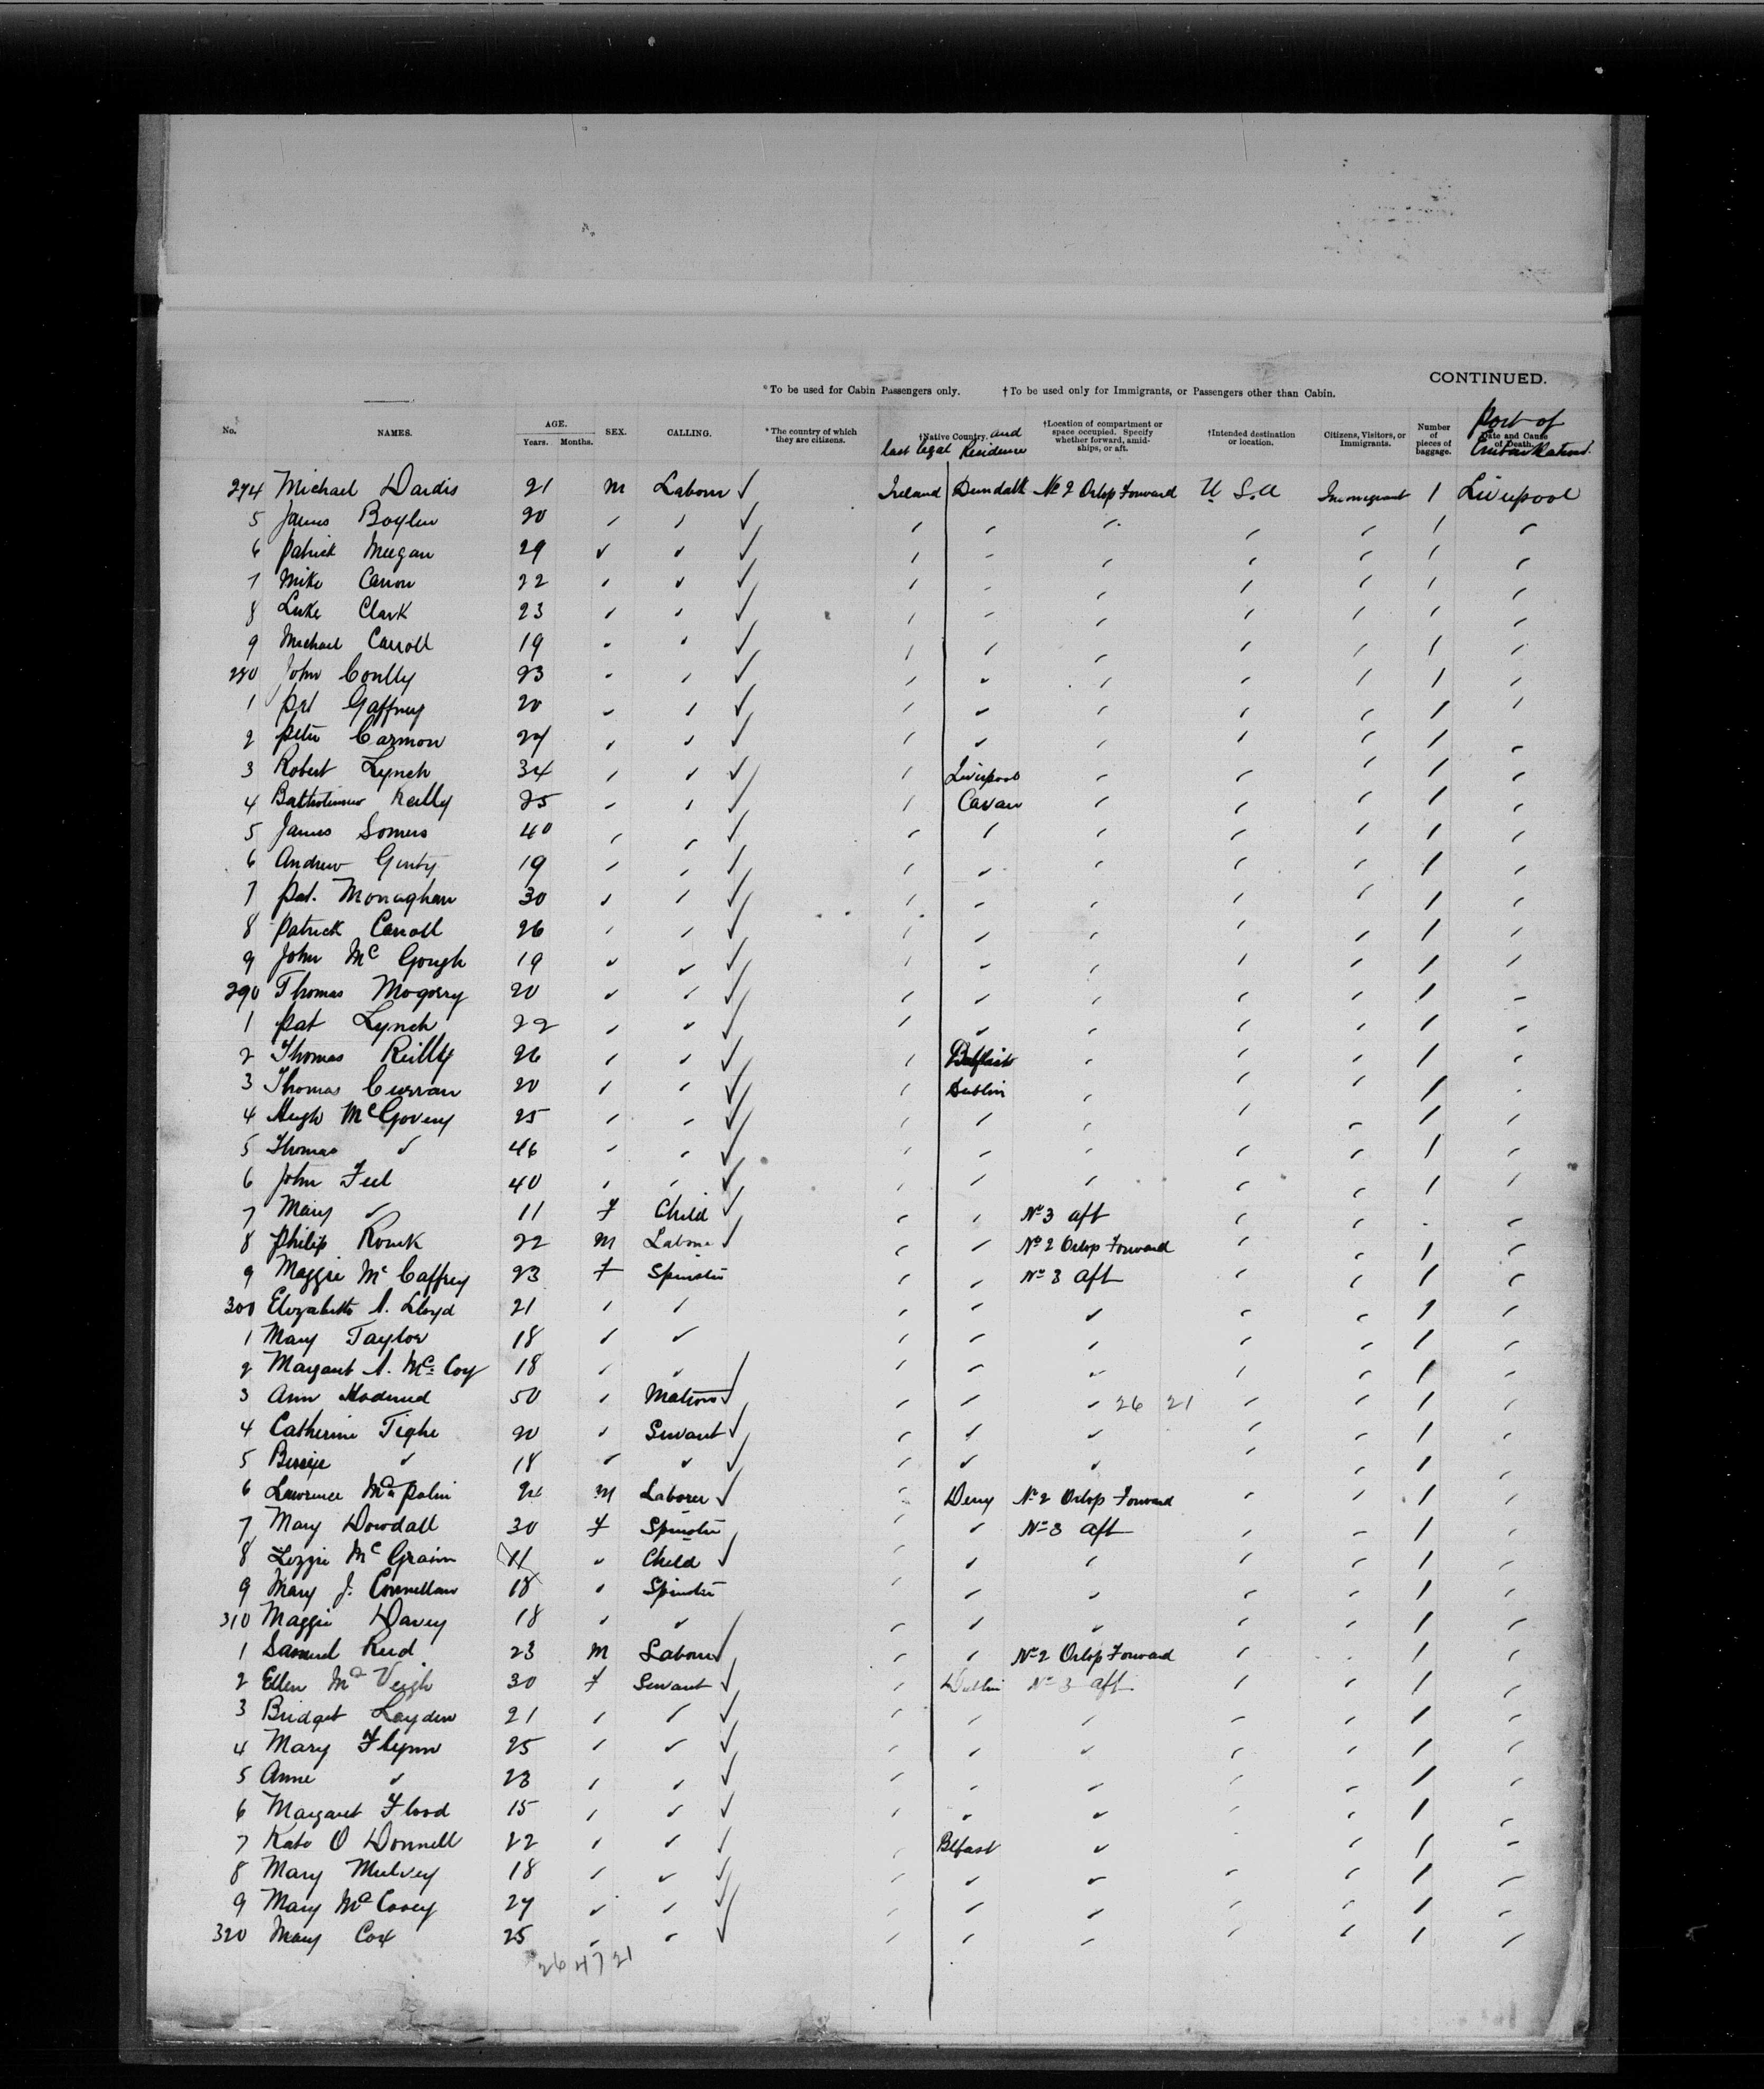 CONTINUED.
*To be used for Cabin Passengers only. †To be used only for Immigrants, or Passengers other than Cabin.
No. NAMES. AGE. Years. Months. SEX. CALLING. *The country of which they are citizens. †Native Country. and last legal Residence †Location of compartment or space occupied. Specify whether forward, amidships, or aft. †Intended destination or location. Citizens, Visitors, or Immigrants. Number of pieces of baggage. Date and Cause of Death. Port of Embarkation.
274 Michael Dardis 21 M Labour ✓ Ireland Dundalk No 2 Orlop Forward U. S. A Immigrant 1 Liverpool
5 James Boylen 20 " " ✓ " " " " " 1 "
6 Patrick Meegan 29 " " ✓ " " " " " 1 "
7 Mike Carron 22 " " ✓ " " " " " 1 "
8 Luke Clark 23 " " ✓ " " " " " 1 "
9 Michael Carroll 19 " " ✓ " " " " " 1 "
280 John Coully 23 " " ✓ " " " " " 1 "
1 Pat Gaffney 20 " " ✓ " " " " " 1 "
2 Peter Carmon 24 " " ✓ " " " " " 1 "
3 Robert Lynch 34 " " ✓ " Liverpool " " " 1 "
4 Bartholimew Reilly 25 " " ✓ " Cavan " " " 1 "
5 James Somers 40 " " ✓ " " " " " 1 "
6 Andrew Ginty 19 " " ✓ " " " " " 1 "
7 Pat. Monaghan 30 " " ✓ " " " " " 1 "
8 Patrick Carroll 26 " " ✓ " " " " " 1 "
9 John Mc Gough 19 " " ✓ " " " " " 1 "
290 Thomas Mogorry 20 " " ✓ " " " " " 1 "
1 Pat Lynch 22 " " ✓ " " " " " 1 "
2 Thomas Reilly 26 " " ✓ " Belfast " " " 1 "
3 Thomas Curran 20 " " ✓ " Dublin " " " 1 "
4 Hugh McGovery 25 " " ✓ " " " " " 1 "
5 Thomas " 46 " " ✓ " " " " " 1 "
6 John Feel 40 " " ✓ " " " " " 1 "
7 Mary " 11 F Child ✓ " " No 3 aft " " "
8 Philip Rourk 22 M Labour ✓ " " No 2 Orlop Forward " " 1 "
9 Maggie Mc Caffrey 23 F Spinster " " No 3 aft " " 1 "
300 Elizabeth A. Lloyd 21 " " " " " " " 1 "
1 Mary Taylor 18 " " " " " " " 1 "
2 Margaret A. Mc Coy 18 " " ✓ " " " " " 1 "
3 Ann 50 " Matron ✓ " " " 26 21 " " 1 "
4 Catherine Tighe 20 " Servant ✓ " " " " " 1 "
5 " 18 " " ✓ " " " " " 1 "
6 Lawrence Mc Palin 24 M Laborer ✓ " Derry No 2 Orlop Forward " " 1 "
7 Mary Dowdall 30 F Spinster " " No 3 aft " " 1 "
8 Lizzie Mc Grain 11 " Child ✓ " " " " " 1 "
9 Mary J. Connellan 18 " Spinster " " " " " 1 "
310 Maggie Davey 18 " " ✓ " " " " " 1 "
1 Samuel Reid 23 M Labour ✓ " " No 2 Orlop Forward " 1 "
2 Ellen Mc Veigh 30 F Servant ✓ " Dublin No 3 aft " " 1 "
3 Bridget Layden 21 " " ✓ " " " " " 1 "
4 Mary Flynn 25 " " ✓ " " " " " 1 "
5 Anne " 23 " " ✓ " " " " " 1 "
6 Margaret Flood 15 " " ✓ " " " " " 1 "
7 Kate O Donnell 22 " " ✓ " Belfast " " " 1 "
8 Mary Mulvey 18 " " ✓ " " " " " 1 "
9 Mary Mc Covey 24 " " ✓ " " " " " 1 "
320 Mary Cox 25 " " ✓ " " " " " 1 "
26 47 21